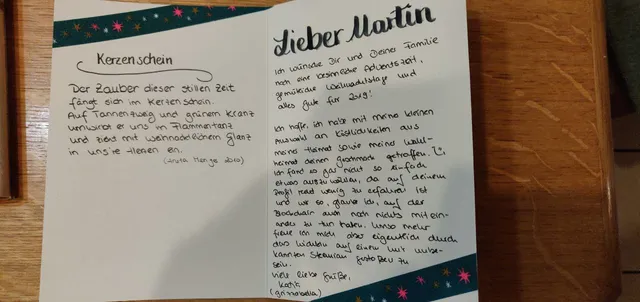 Kerzenschein
Der Zauber dieser stillen Zeit
fängt sich im Kerzenschein.
Auf Tannenzweig und grünem Kranz
verwirrt er uns im Flammentanz
und zieht mit weihnachtlichem Glanz
in uns're Herzen ein.
(Anita Menger 2010)
Lieber Martin
Ich wünsche Dir und Deiner Familie
noch eine besinnliche Adventszeit,
gemütliche Weihnachtstage und
alles Gute für 2019!
Ich hoffe, ich habe mit meiner kleinen
Auswahl an Köstlichkeiten aus
meiner Heimat sowie meiner Wahl-
heimat deinen Geschmack getroffen.
Ich fand es gar nicht so einfach
etwas auszuwählen, da auf deinem
Profil recht wenig zu erfahren ist
und wir so, glaube ich, auf der
Blockchain auch noch nichts mitein-
ander zu tun hatten. Umso mehr
freue ich mich aber eigentlich durch
das Wichteln auf einen mir unbe-
kannten Steemian gestoßen zu
sein.
Viele liebe Grüße,